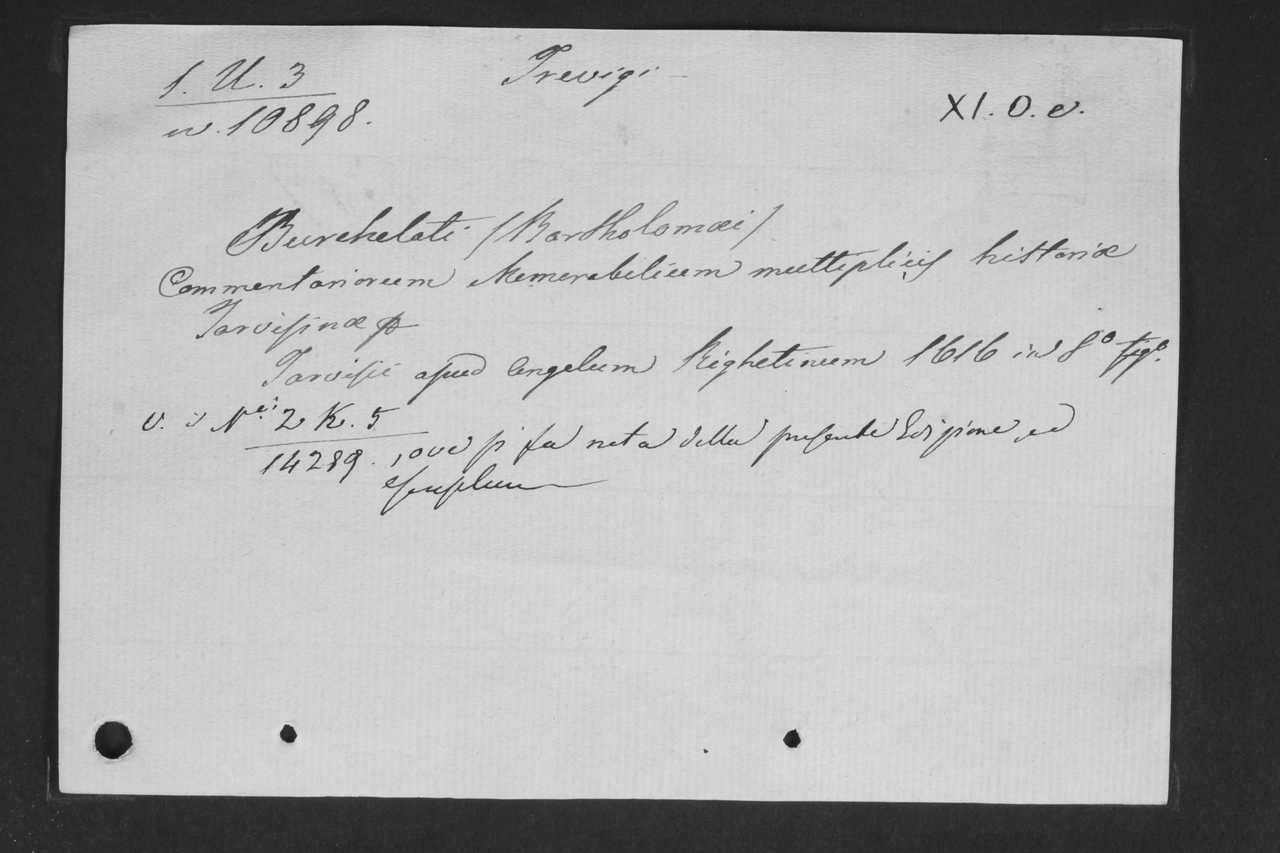 1. U. 3
Trevigi
XI. O. e.
n. 10898.
Burchelati (Bartholomæi)
Commentariorum Memorabilium multiplicis historiæ
Tarvisinæ
Tarvisii apud Angelum Righetinum 1616 in 8º figº.
V. i Nei. 2 K. 5
14289. , ove si fa nota della presente Edizione, ed
esemplare